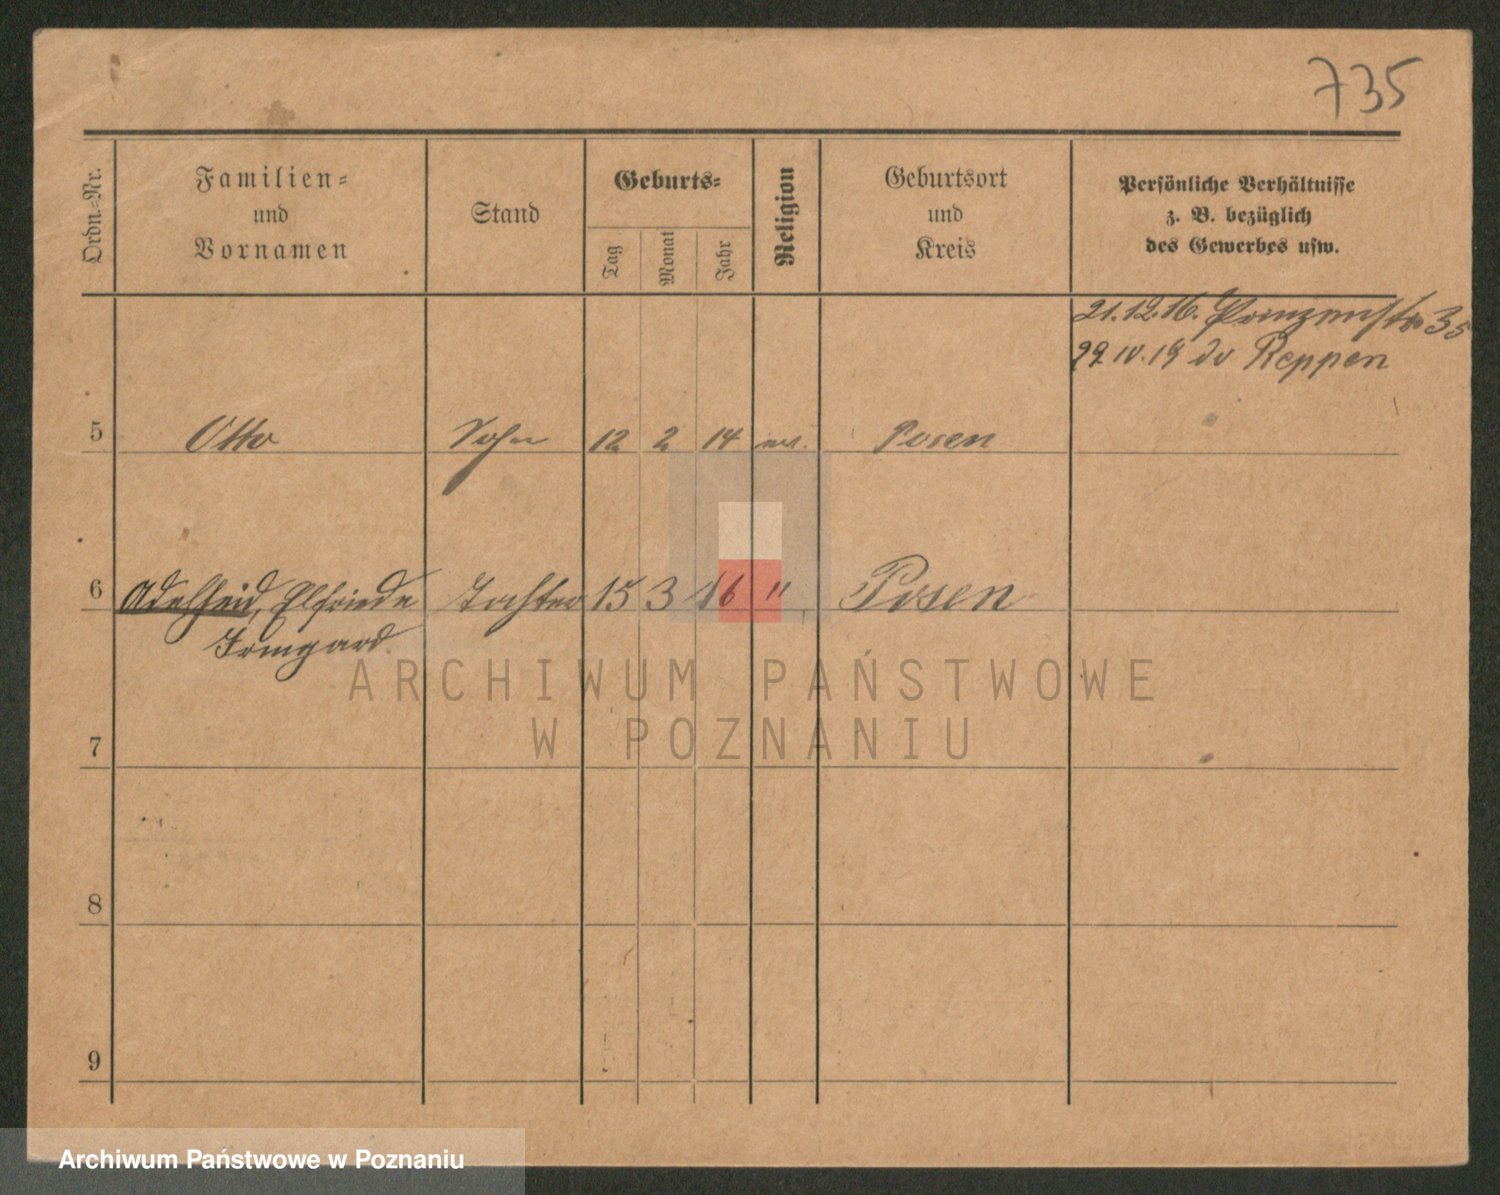 735
Ordn.-Nr.
Familien-
und
Vornamen
Stand
Geburts-
Tag
Monat
Jahr
Religion
Geburtsort
und
Kreis
Persönliche Verhältnisse
z. B. bezüglich
des Gewerbes usw.
21.12.16. Prinzenstr 35
29.IV.19 Reppen
5 Otto Sohn 12 2 14 Posen
6 Adelheid, Elfriede Tochter 15 3 16 " Posen
Irmgard
ARCHIWUM PAŃSTWOWE
W POZNANIU
7
8
9
Archiwum Państwowe w Poznaniu